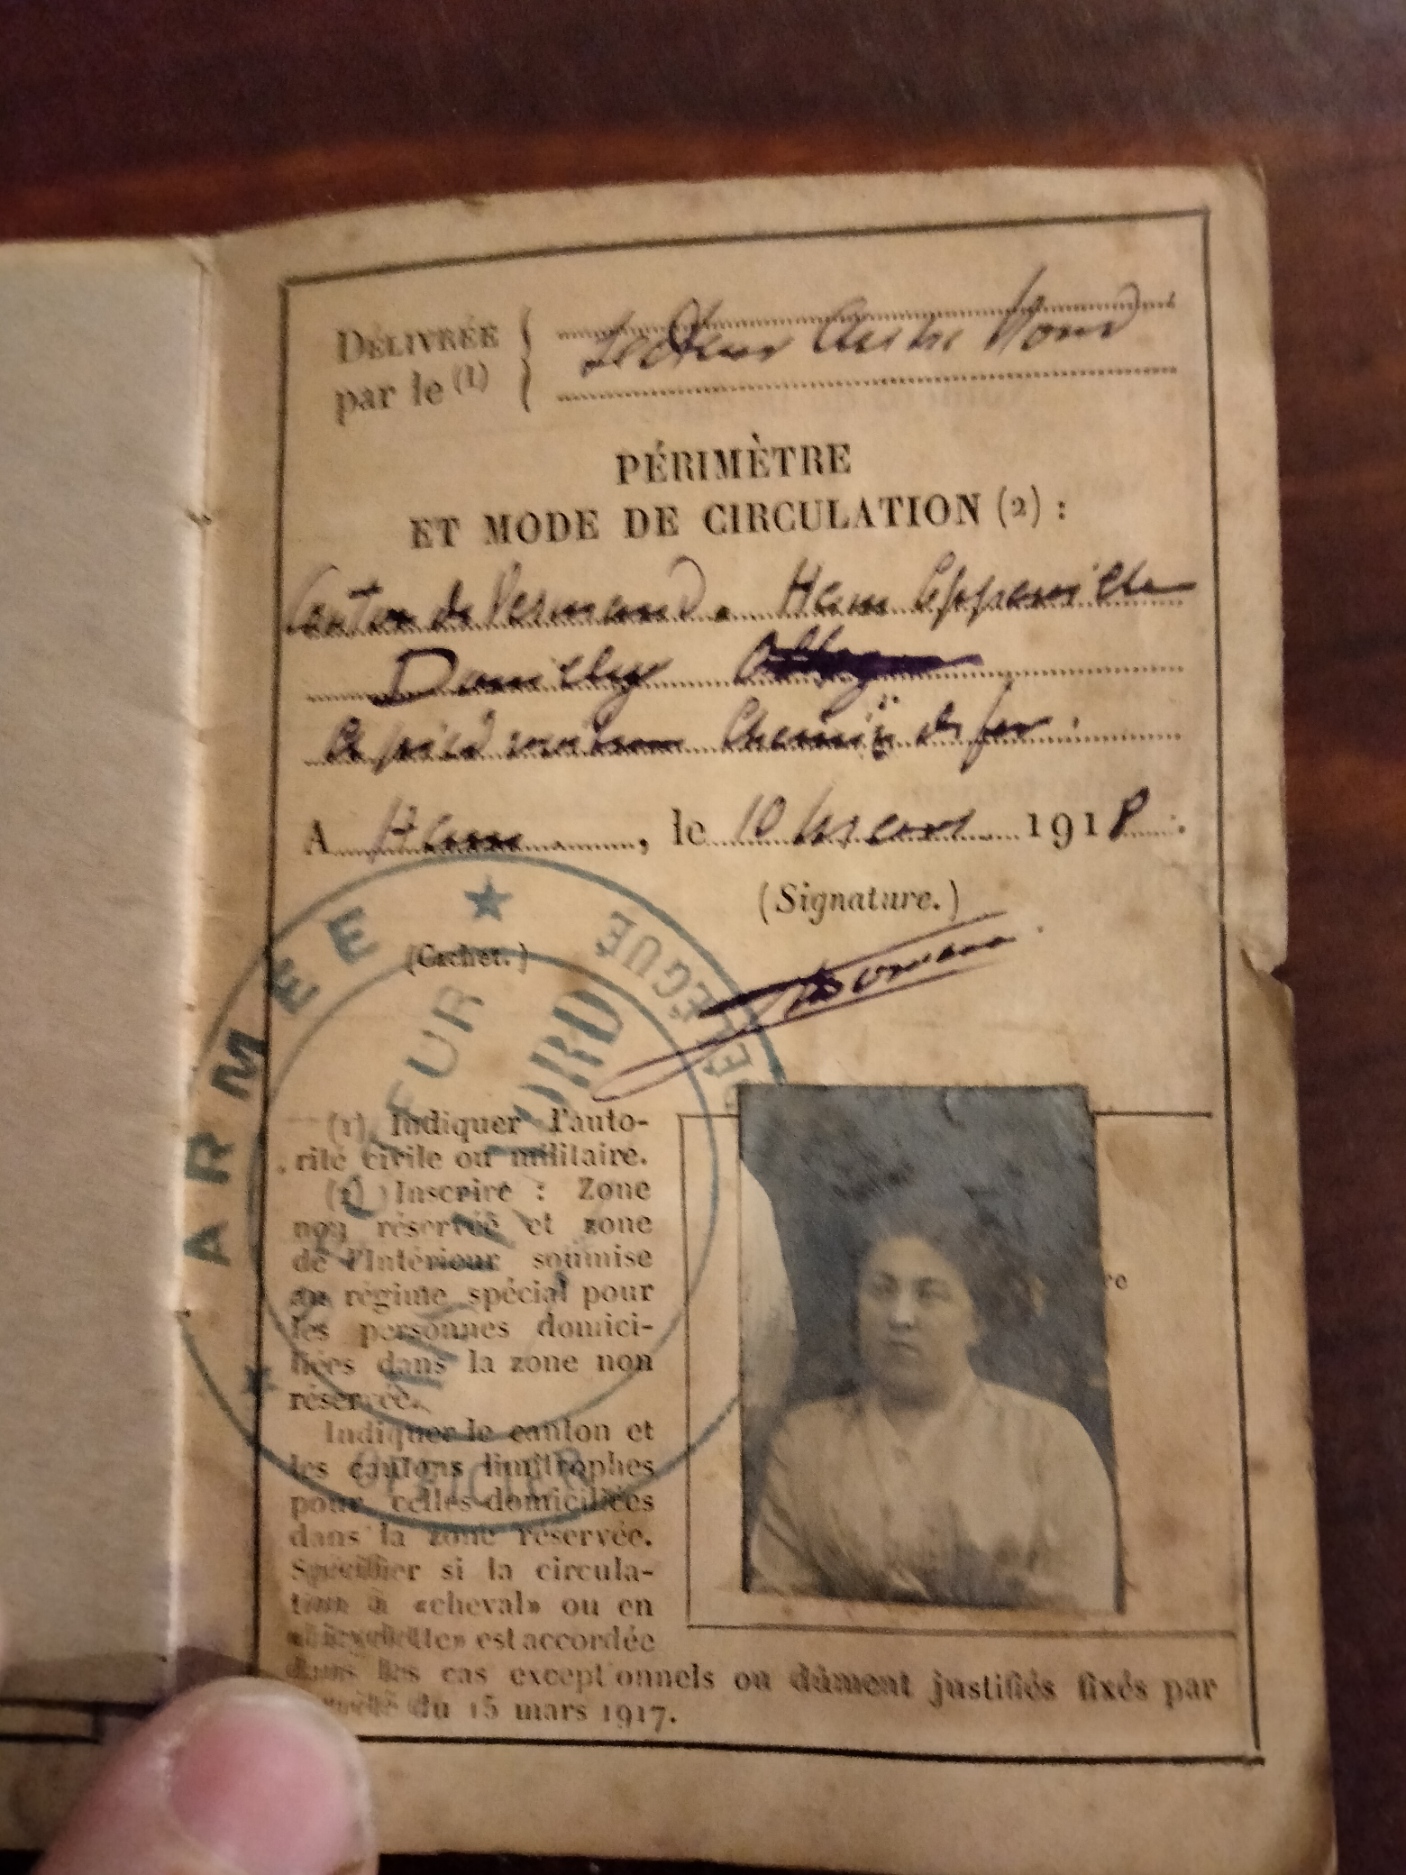 DÉLIVRÉE
par le (1)
Secteur
PÉRIMÈTRE
ET MODE DE CIRCULATION (2) :
Canton de Vermand. Ham Eppeville
Douilly
A pied voiture Chemin de fer.
A Ham, le 10 Mars 1918.
(Signature.)
(Cachet.)
ARMEE
DÉLÉGUÉ
NORD
(1) Indiquer l'auto-
rité civile ou militaire.
(2) Inscrire : Zone
non réservée et zone
de l'Intérieur soumise
au régime spécial pour
les personnes domici-
liées dans la zone non
réservée.
Indiquer le canton et
les cantons limitrophes
pour celles domiciliées
dans la zone réservée.
Spécifier si la circula-
tion à «cheval» ou en
«bicyclette» est accordée
dans les cas exceptionnels ou dûment justifiés fixés par
du 15 mars 1917.
re